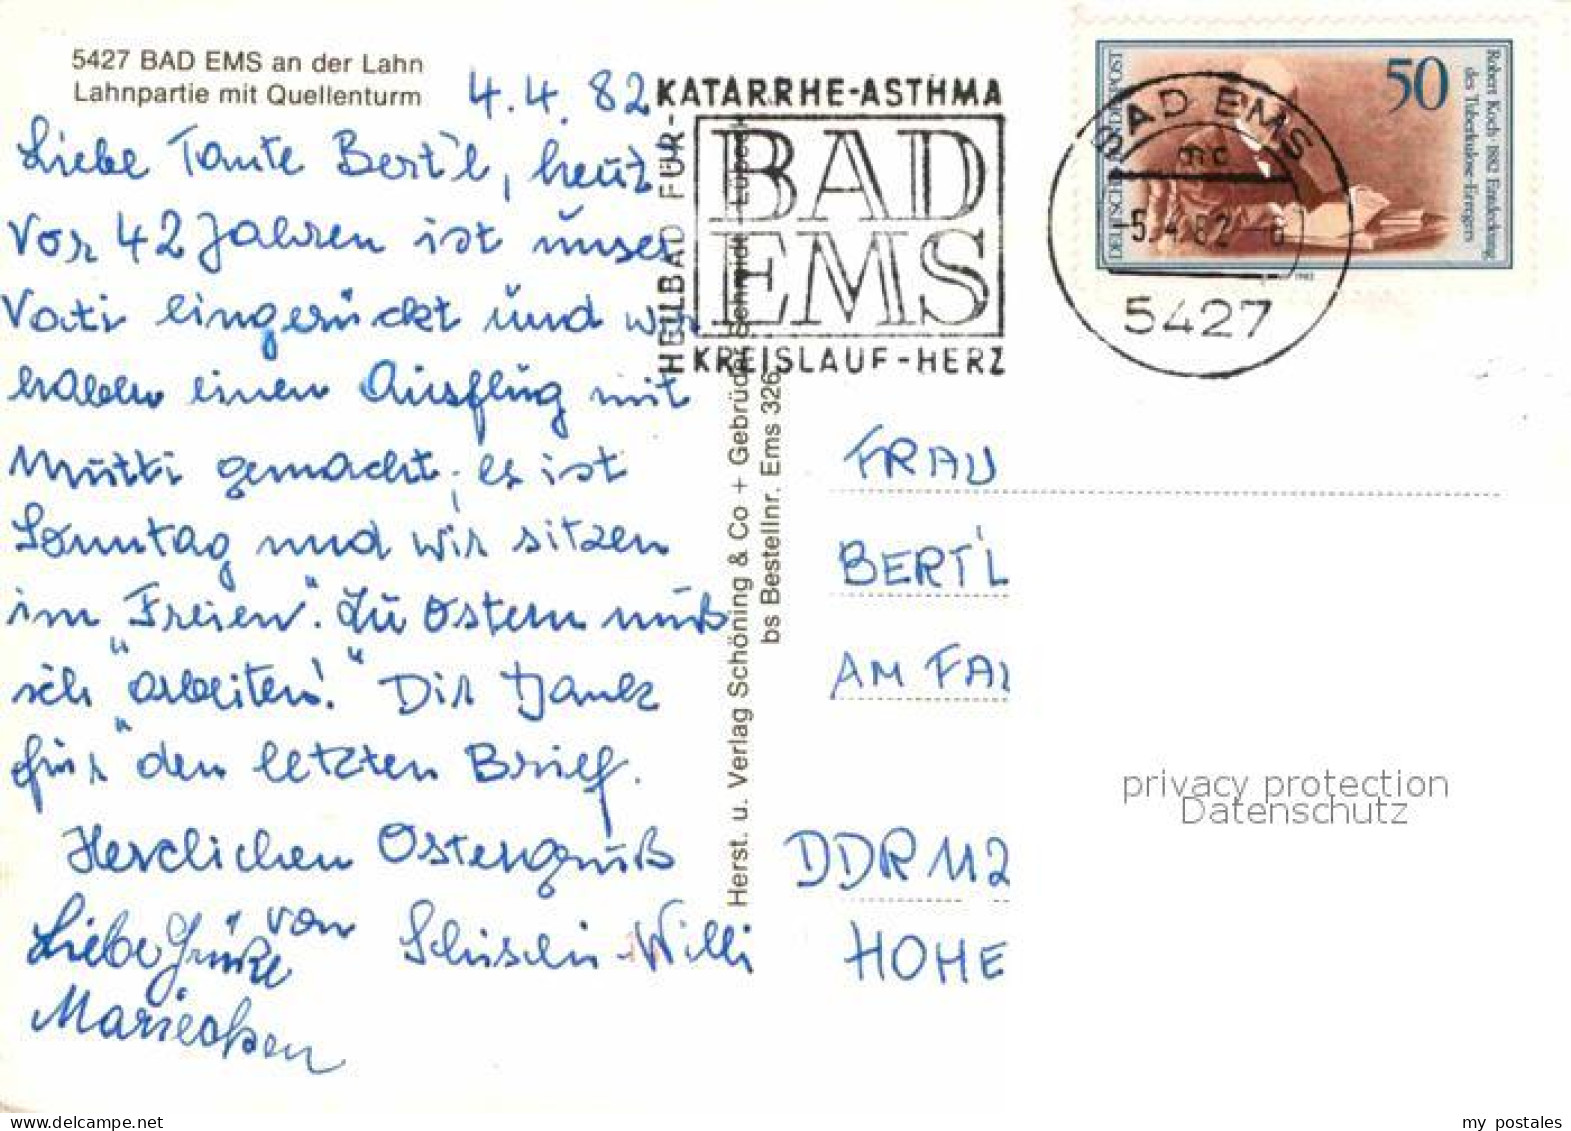 5427 BAD EMS an der Lahn
Lahnpartie mit Quellenturm
4.4.82
Liebe Tante Bert'l, heut
vor 42 Jahren ist unser
Vati eingerückt und wir
haben einen Ausflug mit
Mutti gemacht; es ist
Sonntag und wir sitzen
im "Freien". Zu Ostern muß
ich "arbeiten!" Dir Dank
für den letzten Brief.
Herzlichen Ostergruß
von Willi
Liebe Grüße
Mariechen
HEILBAD FÜR-
KATARRHE-ASTHMA
BAD
EMS
KREISLAUF-HERZ
Herst. u. Verlag Schöning & Co + Gebrüder Schmidt Lübeck
bs Bestellnr. Ems 326
BAD EMS
mc
-5.4.82
5427
DEUTSCHE BUNDESPOST
50
Robert Koch · 1882 Entdeckung
des Tuberkulose-Erregers
1982
FRAU
BERT'L
AM FA
DDR 112
HOHE
privacy protection
Datenschutz
www.delcampe.net
my_postales